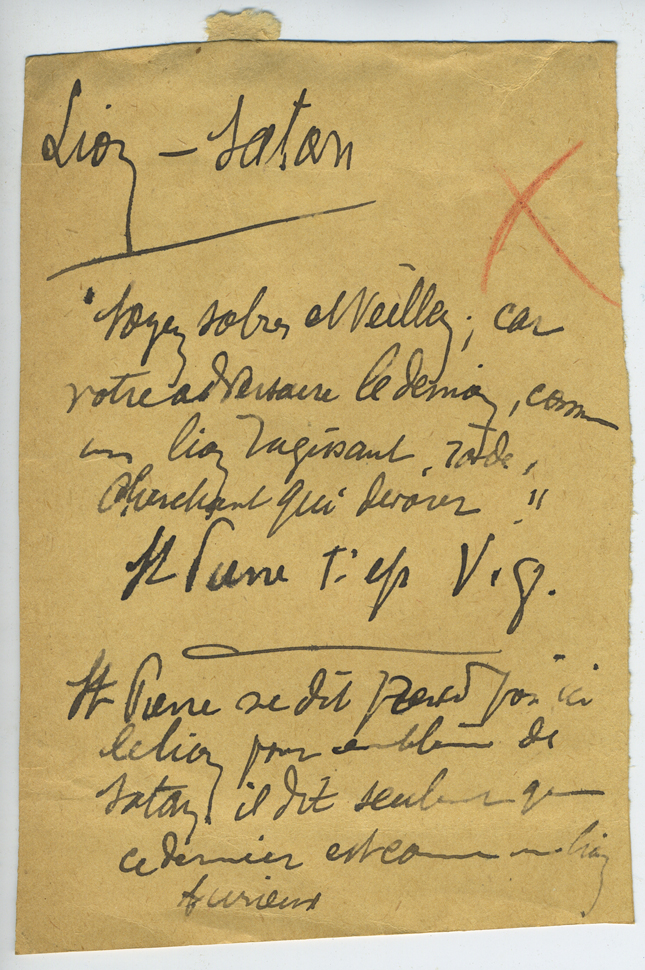 Lion – Satan
"Soyez sobres et Veillez; car
votre adversaire le demon, comme
un lion rugissant, rôde,
cherchant qui devorer"
St Pierre 1° ep V. 8.
St Pierre ne dit pas ici
le lion pour emblème de
Satan. il dit seulement que
ce dernier est comme un lion
furieux